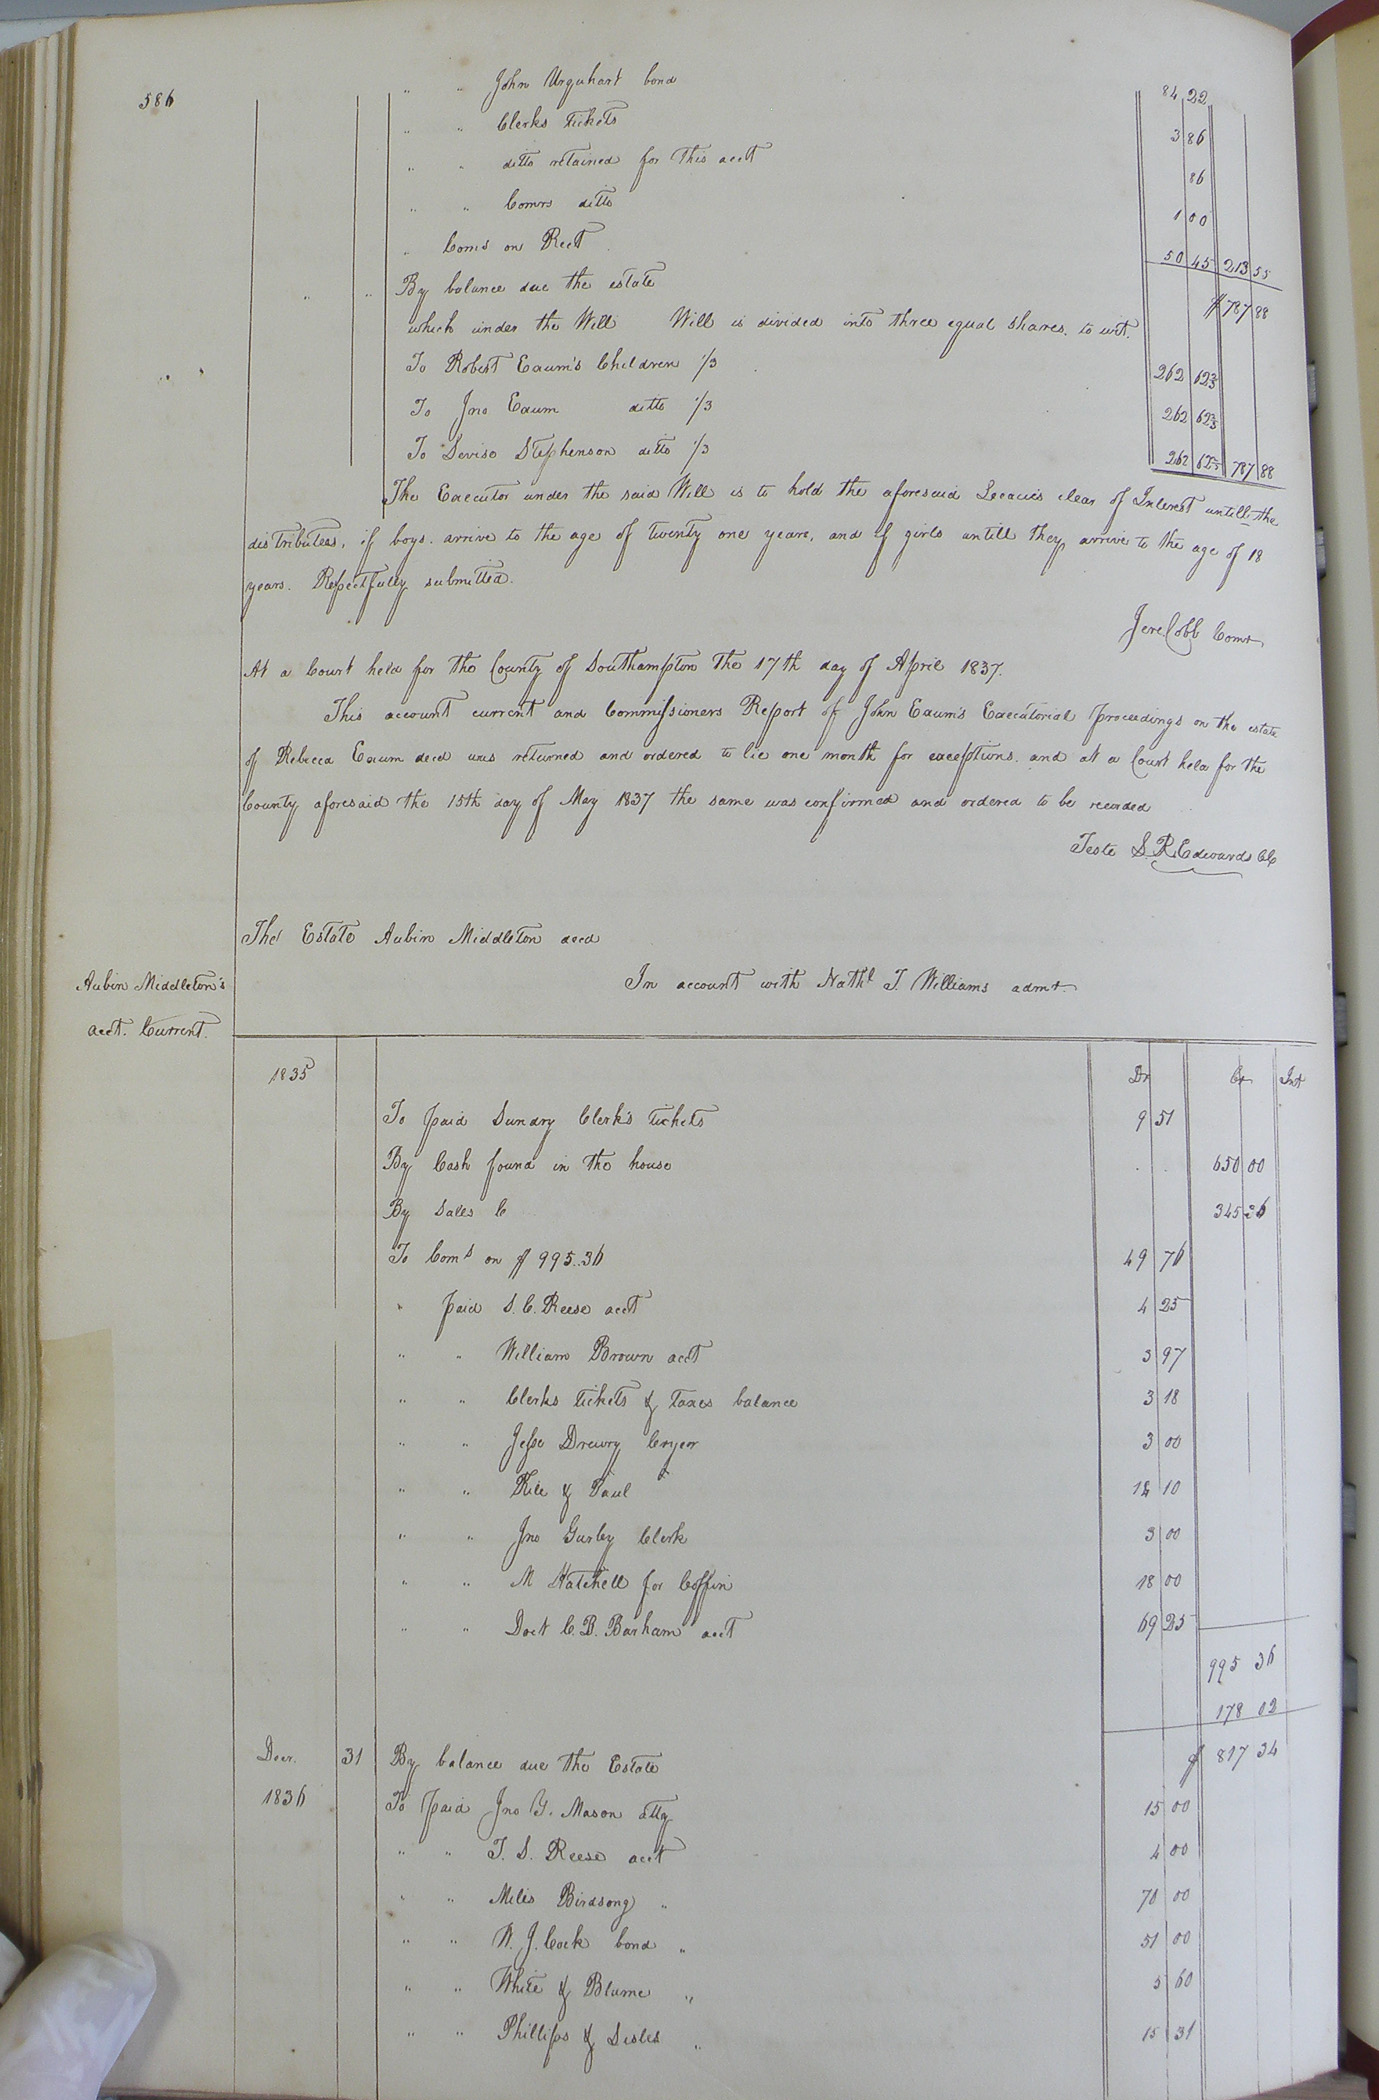 586
" " John Urquhart bond 84 22
" " Clerks Tickets 3 86
" " ditto retained for this acct 86
" " Comrs ditto 1 00
" Coms on Rect 50 45 213 55
" " By balance due the estate $ 787 88
which under the Will Will is divided into three equal shares. to wit.
To Robert Exum's Children 1/3 262 62 2/3
To Jno Exum ditto 1/3 262 62 2/3
To Deviso Stephenson ditto 1/3 262 62 2/3 787 88
The Executor under the said Will is to hold the aforesaid Legacies clear of Interest untill the
distributees, if boys. arrive to the age of twenty one years, and if girls untill they arrive to the age of 18
years. Respectfully submitted.
Jere Cobb Comr
At a Court held for the County of Southampton the 17th day of April 1837.
This account current and Commissioners Report of John Exum's Executorial proceedings on the estate
of Rebecca Exum decd was returned and ordered to lie one month for exceptions. and at a Court held for the
County aforesaid the 15th day of May 1837 the same was confirmed and ordered to be recorded
Teste S. R. Edwards CC
The Estate Aubin Middleton decd
Aubin Middleton's
In account with Nathl T. Williams admr
acct. Current.
1835 Dr Cr Int
To paid Sundry Clerk's tickets 9 51
By Cash found in the house . . 650 00
By Sales C 345 36
To Coms on $ 995..36 49 76
" paid S. C. Reese acct 4 25
" " William Brown acct 3 97
" " Clerks tickets & taxes balance 3 18
" " Jesse Drewry Cryer 3 00
" " Rice & Paul 10
" " Jno Gurley Clerk 3 00
" " M Hatchell for Coffin 18 00
" " Doct C. B. Barham acct 69 25
995 36
178 02
Decr. 31 By balance due the Estate $ 817 34
1836 To paid Jno Y. Mason atty 15 00
" " T. S. Reese acct 4 00
" " Miles Birdsong " 70 00
" " N. J. Cock bond " 51 00
" " White & Blume " 5 60
" " Phillips & Lesles " 15 31